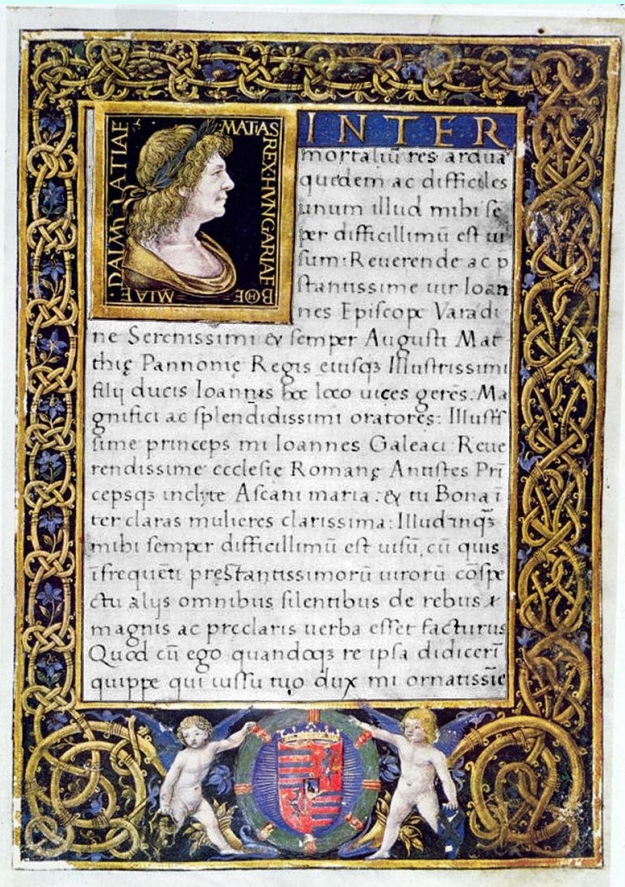 MATIAS REX HVNGARIAE BOHEMIAE DALMATIAE
INTER
mortaliū res ardua
quedem ac difficiles
unum illud mihi se
per difficillimū est ui
sum: Reverende ac p
stantissime uir Ioan
nes Episcope Varadi
ne Serenissimi & semper Augusti Mat
thię Pannonię Regis eiusqꝫ Illustrissimi
filij ducis Ioannis hoc loco uices gerēs: Ma
gnifici ac splendidissimi oratores: Illustris
sime princeps mi Ioannes Galeaci: Reue
rendissime ecclesie Romanę Antistes Pri
cepsqꝫ inclyte Ascani maria: & tu Bona ī
ter claras mulieres clarissima: Illud inqꝫ
mihi semper difficillimū est uisū, cū quis
ī frequēti pręstantissimorū uirorū cōspe
ctu alijs omnibus silentibus de rebus
magnis ac preclaris uerba esset facturus
Quod cū ego quandoqꝫ re ipsa didicerī
quippe qui iussu tuo dux mi ornatissie